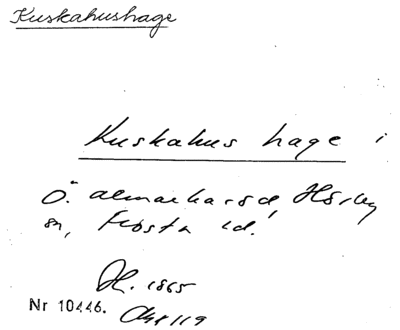 Kuskahushage
Kuskahus hage i
Ö. Almarharad, Hörby
sn, Frosta hd.
H. 1865
Nr 10446. Akt 119